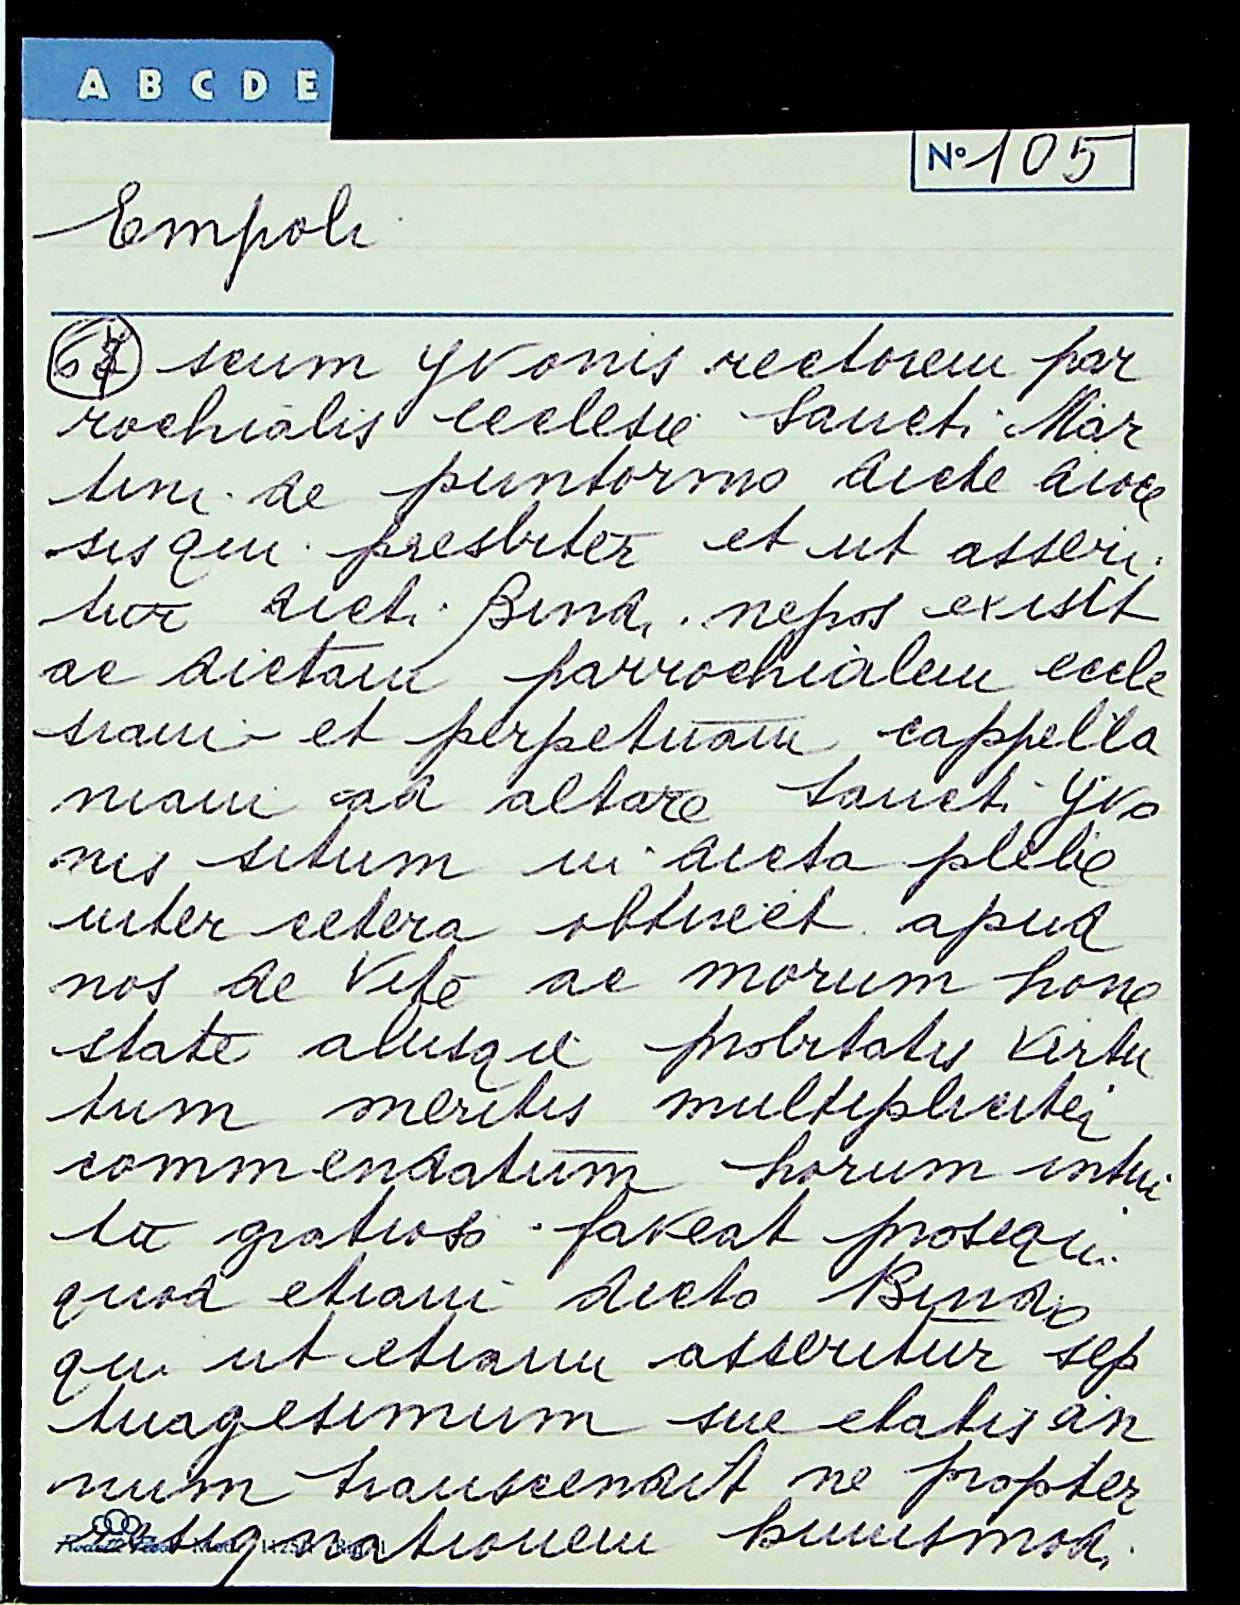 A B C D E
Nº 105
Empoli
scum Yvonis rectorem par
rochialis ecclesie Sancti Mar
tini de puntormo dicte dioce
sis qui presbiter et ut asseri
tur dicti Bindi nepos existit
ac dictam parrochialem eccle
siam et perpetuam cappella
niam ad altare Sancti Yvo
nis situm in dicta plebe
inter cetera obtinet apud
nos de vite ac morum hone
state aliisque probitatis virtu
tum meritis multipliciter
commendatum horum intui
tu gratioso faveat prosequi
quod etiam dicto Bindo
qui ut etiam asseritur sep
tuagesimum sue etatis an
num transcendit ne propter
resignationem huiusmodi